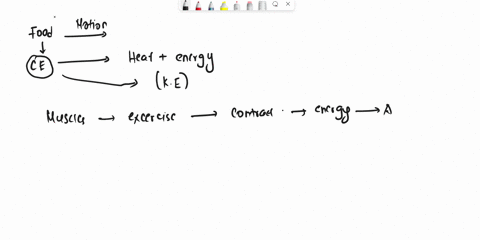 Food Motion
C E Heat + energy
(K.E)
Muscles → exercise → contract → energy → A